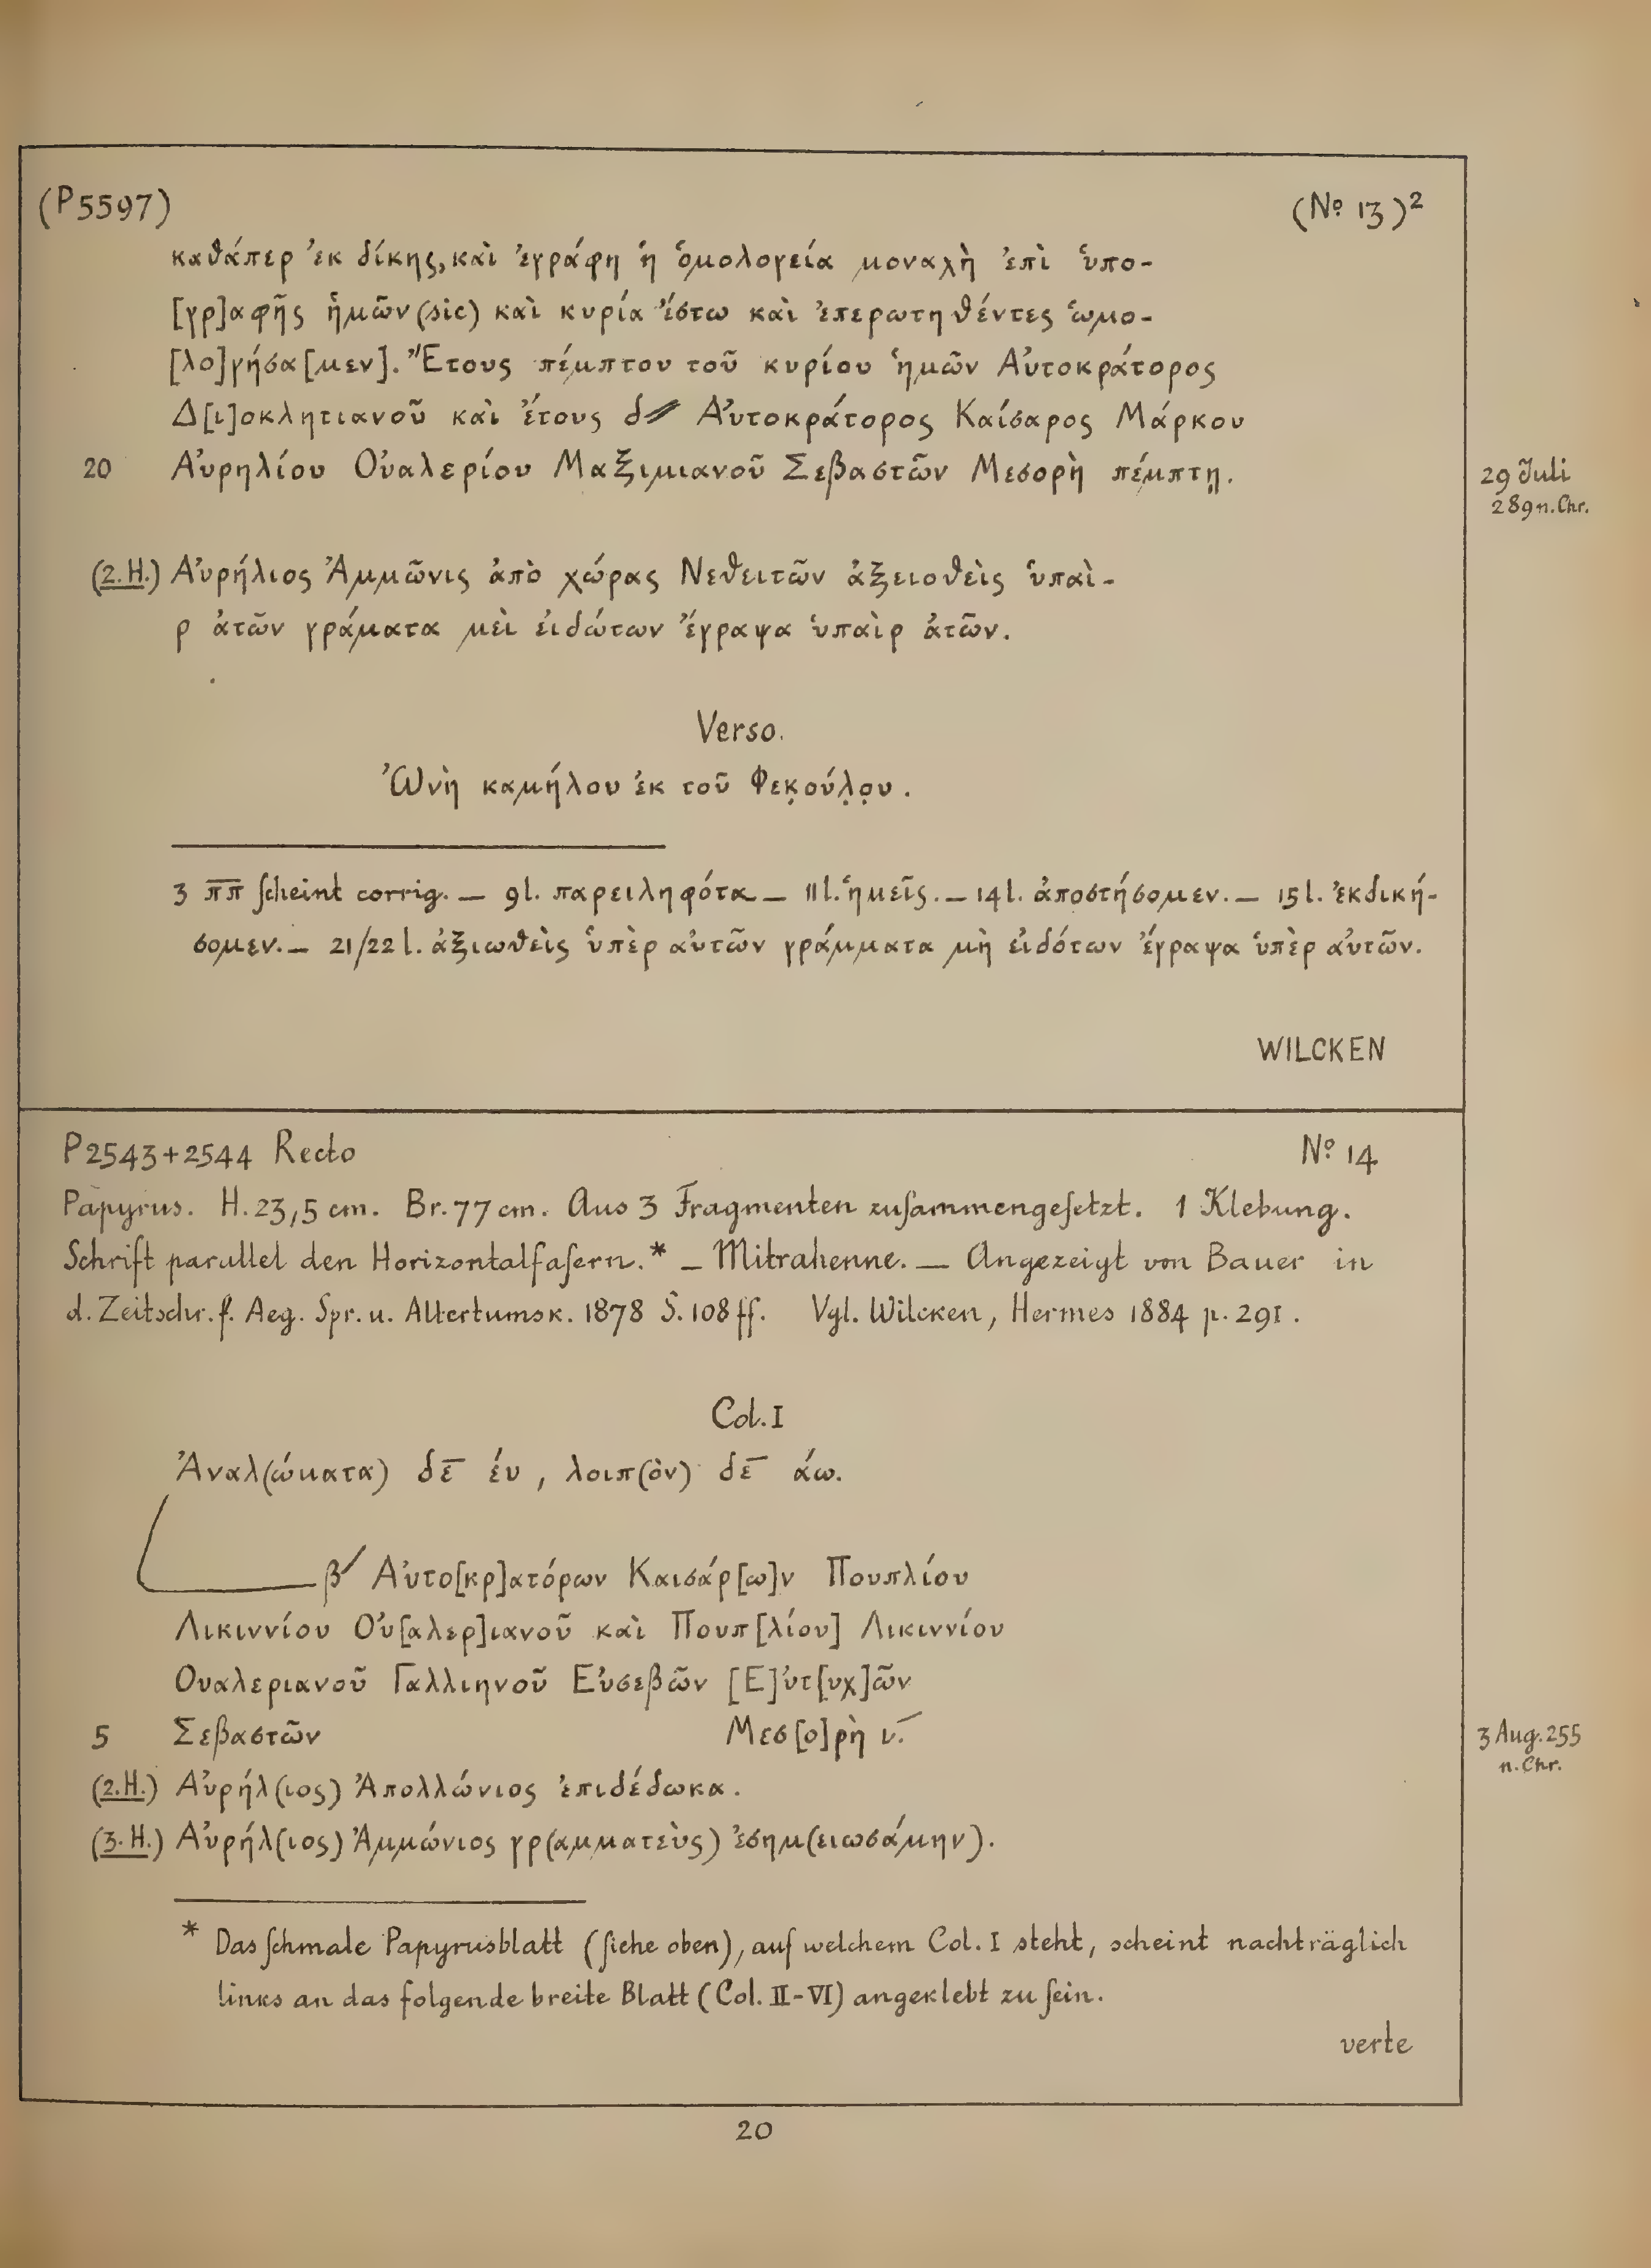 (P 5597) (No 13)²
καθάπερ ἐκ δίκης, καὶ ἐγράφη ἡ ὁμολογεία μοναχὴ ἐπὶ ὑπο-
[γρ]αφῆς ἡμῶν (sic) καὶ κυρία ἔστω καὶ ἐπερωτηθέντες ὡμο-
[λο]γήσα[μεν]. Ἔτους πέμπτου τοῦ κυρίου ἡμῶν Αὐτοκράτορος
Δ[ι]οκλητιανοῦ καὶ ἔτους δ⫽ Αὐτοκράτορος Καίσαρος Μάρκου
20 Αὐρηλίου Οὐαλερίου Μαξιμιανοῦ Σεβαστῶν Μεσορὴ πέμπτῃ. 29 Juli
289 n. Chr.
(2. H.) Αὐρήλιος Ἀμμῶνις ἀπὸ χώρας Νεθειτῶν ἀξειοθεὶς ὑπαὶ-
ρ ἀτῶν γράματα μεὶ εἰδώτων ἔγραψα ὑπαὶρ ἀτῶν.
Verso.
Ὠνὴ καμήλου ἐκ τοῦ Φεκ̣ούλ̣ο̣υ.
3 π̅π̅ scheint corrig. — 9 l. παρειληφότα — 11 l. ἡμεῖς. — 14 l. ἀποστήσομεν. — 15 l. ἐκδική-
σομεν. — 21/22 l. ἀξιωθεὶς ὑπὲρ αὐτῶν γράμματα μὴ εἰδότων ἔγραψα ὑπὲρ αὐτῶν.
WILCKEN
P 2543+2544 Recto No 14
Papyrus. H. 23,5 cm. Br. 77 cm. Aus 3 Fragmenten zusammengesetzt. 1 Klebung.
Schrift parallel den Horizontalfasern.* — Mitrahenne. — Angezeigt von Bauer in
d. Zeitschr. f. Aeg. Spr. u. Altertumsk. 1878 S. 108 ff. Vgl. Wilcken, Hermes 1884 p. 291.
Col. I
Ἀναλ(ώματα) δε̅ ἔυ, λοιπ(ὸν) δε̅ ά́ω.
β´ Αὐτο[κρ]ατόρων Καισάρ[ω]ν Πουπλίου
Λικιννίου Οὐ[αλερ]ιανοῦ καὶ Πουπ[λίου] Λικιννίου
Ουαλεριανοῦ Γαλλιηνοῦ Εὐσεβῶν [Ε]ὐτ[υχ]ῶν
5 Σεβαστῶν Μεσ[ο]ρὴ ι̅. 3 Aug. 255
n. Chr.
(2. H.) Αὐρήλ(ιος) Ἀπολλώνιος ἐπιδέδωκα.
(3. H.) Αὐρήλ(ιος) Ἀμμώνιος γρ(αμματεὺς) ἐσημ(ειωσάμην).
* Das schmale Papyrusblatt (siehe oben), auf welchem Col. I steht, scheint nachträglich
links an das folgende breite Blatt (Col. II-VI) angeklebt zu sein.
verte
20